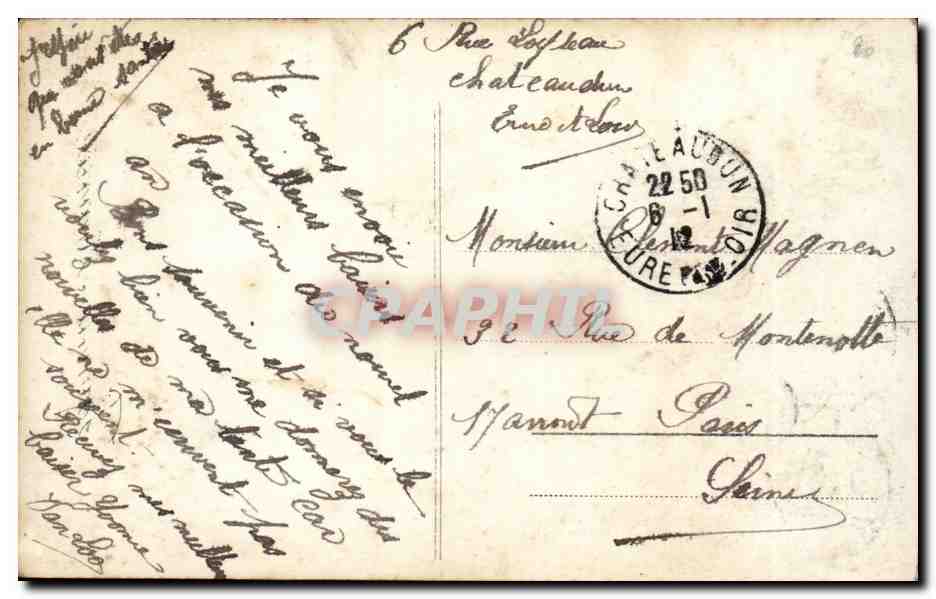 J'espère
que vous êtes
en bonne santé
Je vous envoie
mes meilleurs baisers
a l'occasion du nouvel
an Bons souvenir et si vous le
voulez bien vous me donnerez des
nouvelles de ma tant car
elle ne m'écrivent pas
souvent.
Recevez mes meilleur
baiser Yvonne
Van Loo
6 Rue Loyseau
Chateaudun
Eure et Loir
CHATEAUDUN
22 50
6 - 1
12
EURE-ET-LOIR
Monsieur Clement Magnen
32 Rue de Montenotte
17 arront Paris
Seine
CPAPHIL